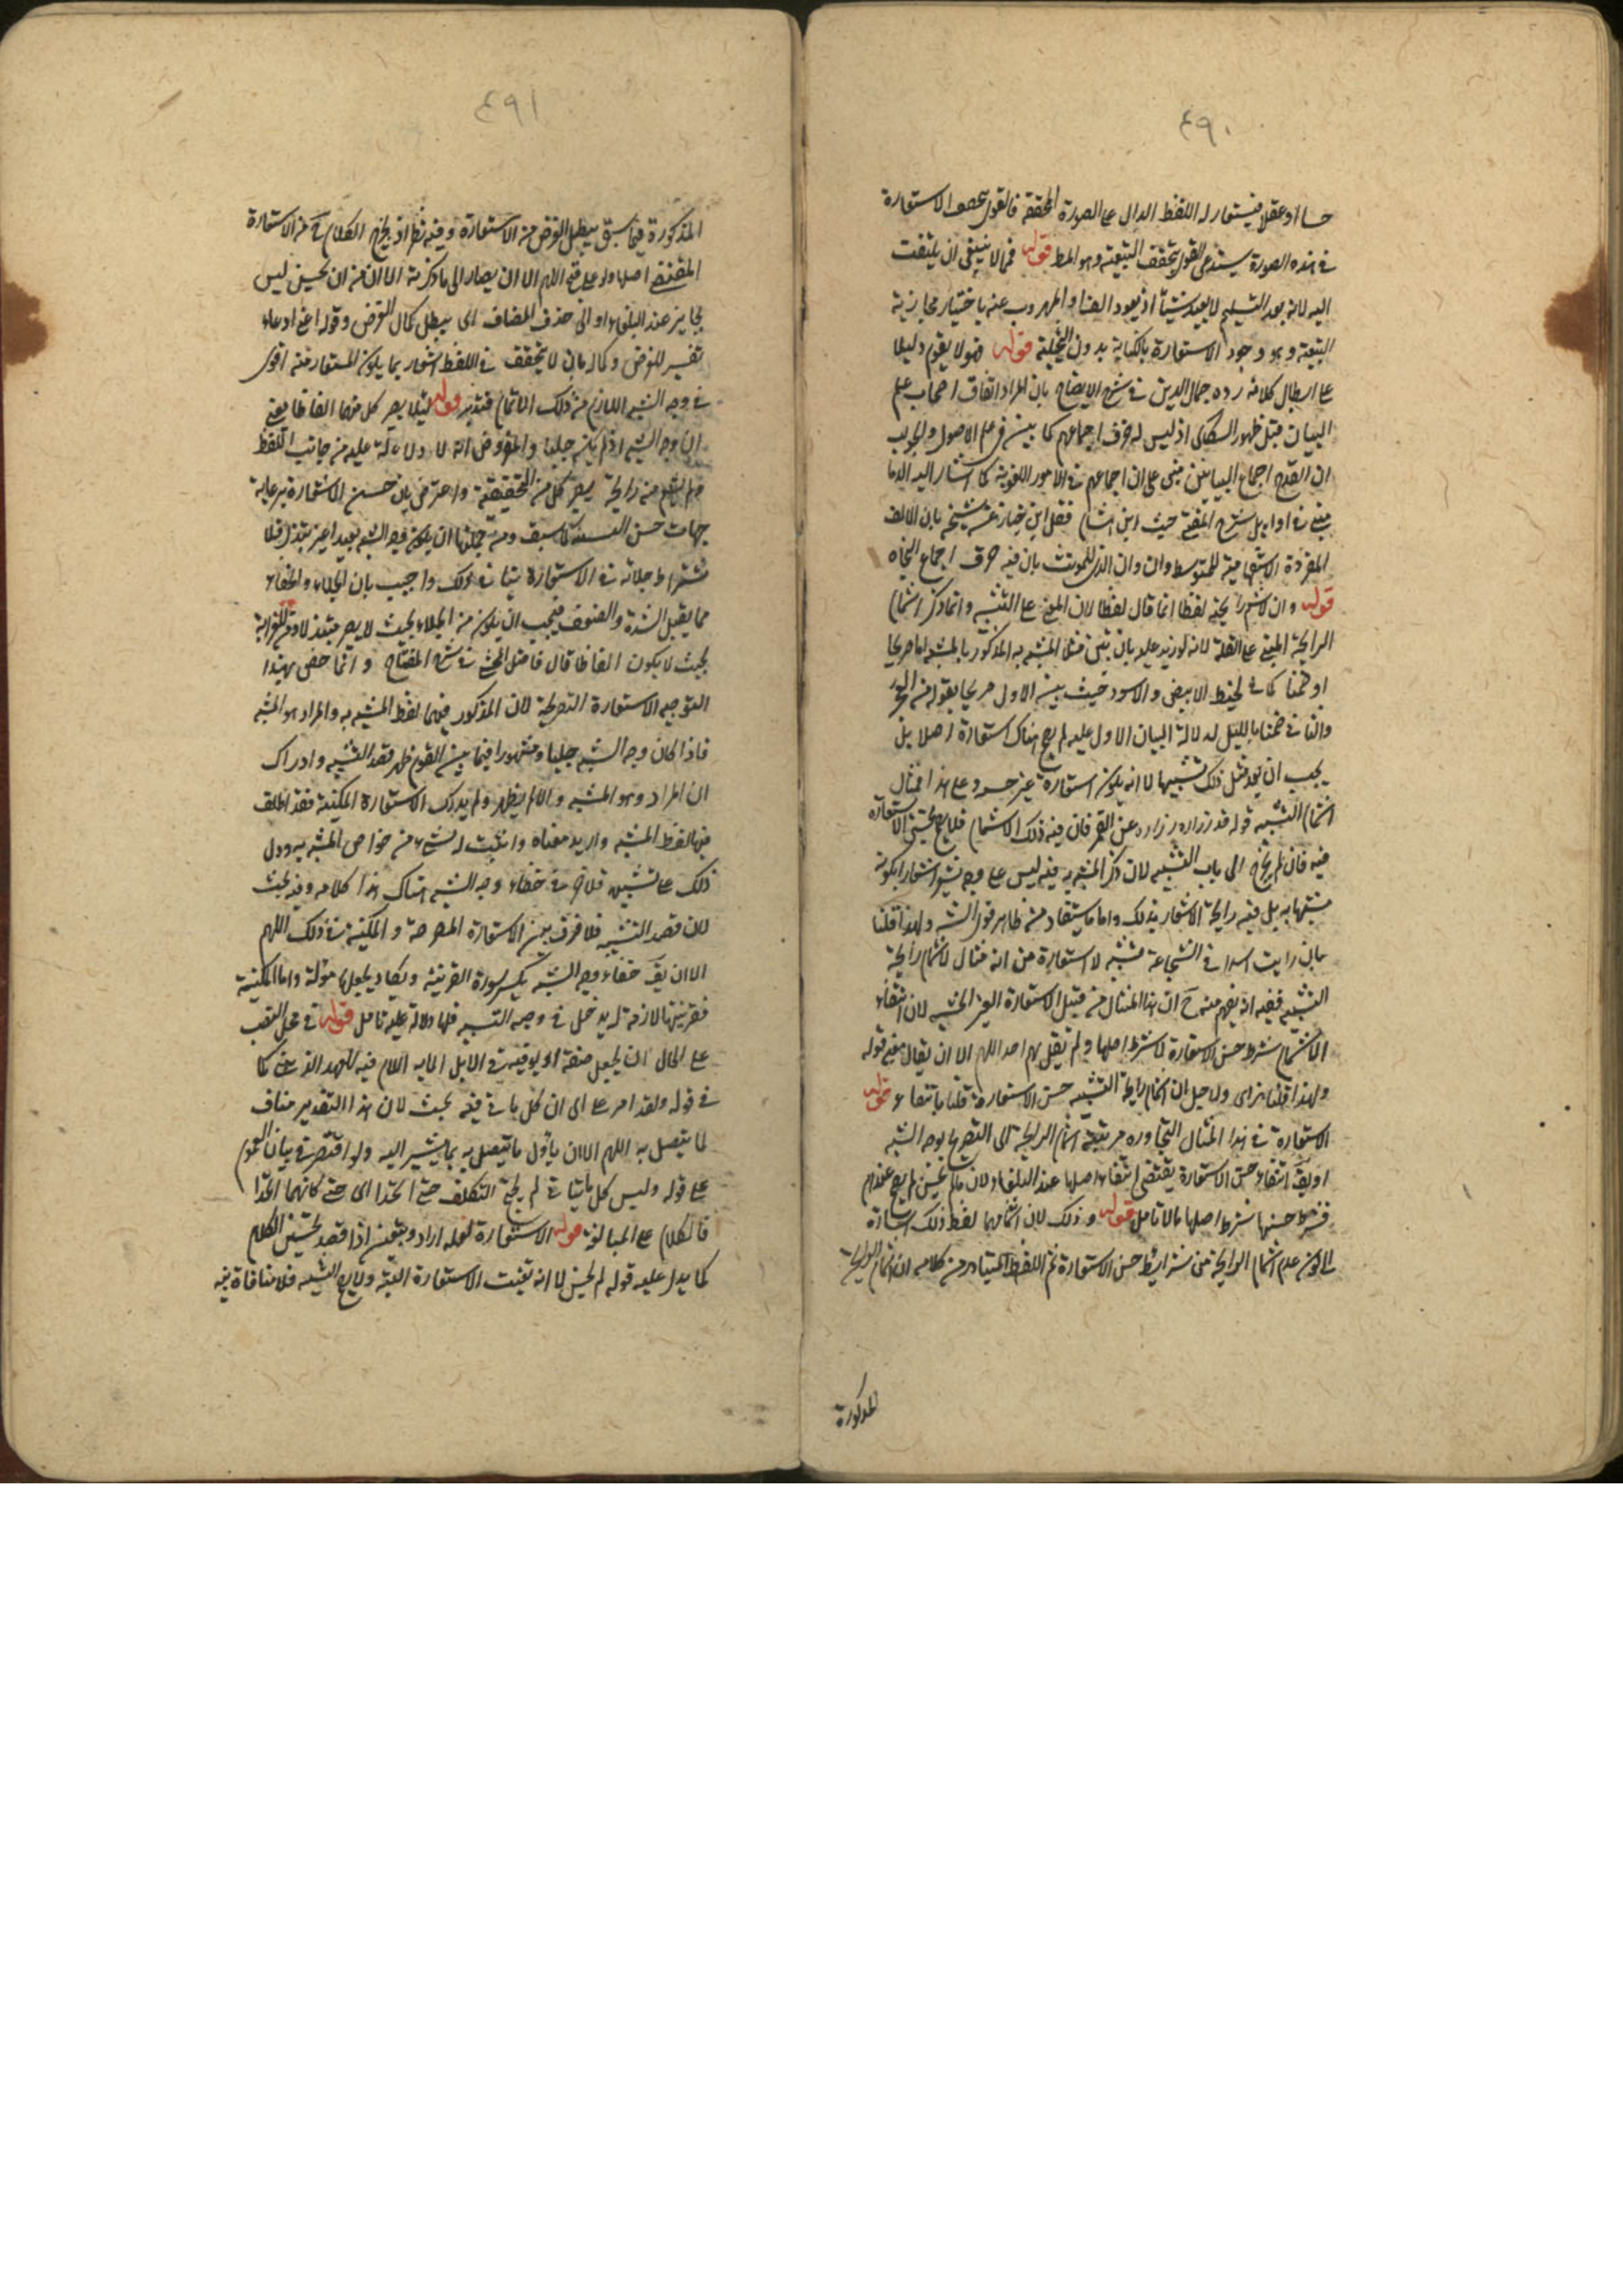 ٤٩٠
حسا او عقلا فيستعار له اللفظ الدال على الصورة المحققة فالقول الاستعارة
في هذه الصورة يستدعى القول بتحقق التبعية وهو المط قوله فمما لا ينبغي ان يلتفت
اليه لانه بعد التسليم لا يفيد شيئا اذ يعود الفساد المهروب عنه باختيار مجازية
التبعية وهو وجود الاستعارة بالكناية بدون التخييلية قوله فهو لا يقوم دليلا
على ابطال كلامه رده جمال الدين في شرح الايضاح بان المراد اتفاق اصحاب علم
البيان قبل ظهور السكاكى اذ ليس له خرق اجماعهم كما بين في علم الاصول والجواب
ان القدح اجماع البيانيين مبنى على ان اجماعهم في الامور اللغوية كما اشار اليه الدما
مينى في اوايل شرح المغنى حيث ابن هشام نقل ابن خباز عن شيخه بان الالف
المفردة الاستفهامية للمتوسط وان الذى للمونث بان فيه خرق اجماع النحاه
قوله وان لا يشم رايحته لفظا انما قال لفظا لان المبنى على التشبيه وانما ذكر اشمام
الرايحة المبنى على القلة لانه لو زيد عليه بان بين مثلا المشبه به المذكور بالمشبه اما صريحا
او ضمنا كما في الخيط الابيض والاسود حيث بين الاول صريحا بقوله من الفجر
والثانى ضمنا بالليل لدلالة البيان الاول عليه لم يصح هناك استعارة اصلا بل
يجب ان يعد مثل ذلك تشبيها لا انه يكون استعارة غير حسن وعلى هذا فمثال
اشمام التشبيه قوله قد زر ازراره على القمر فان فيه ذلك الاشمام فلا يحسن الاستعارة
فيه فان لم يخرج الى باب التشبيه لان ذكر المشبه به فيه ليس على وجه اشعارا بكونه
مشبها به بل فيه رايحة الاشعار بذلك واما ما يستفاد من ظاهر قول الش ولهذا قلنا
بان رايت اسدا في الشجاعة تشبيه لا استعارة من انه مثال لاشمام رايحة
التشبيه ففيه اذ يفهم منه ح ان هذا المثال من قبيل الاستعارة الغير الحسنة لان انتفاء
الاشمام شرط حسن الاستعارة لا شرط اصلها ولم يقل بهم احد اللهم الا ان يقال معنى قوله
ولهذا قلنا هذا اى ولاجل ان اشمام رايحة التشبيه حسن الاستعارة قلنا بانتفاء قوله
الاستعارة في هذا المثال التجاوزه مرتبة اشمام الرايحة الى التصريح بوجه الشبه
او يقال انتفاء حسن الاستعارة يقتضى انتفاء اصلها عند البلغاء لان ما لم يحسن لم يصح عندهم
فشرط حسنها شرط اصلها بالا تامل قوله وذلك لان اشمامها لفظ ذلك اشارة
الى كون عدم اشمام الرايحة من شرايط حسن الاستعارة ثم اللفظ المتبادر من كلامه ان اشمام الرايحة
المذكورة
٤٩١
المذكورة فيما سبق يبطل الغرض من الاستعارة وفيه نظر اذ يخرج الكلام ح من الاستعارة
المقتضى اصلها ولو على قبح اللهم الا ان يصار الى ما ذكرته الان من ان لم يحسن ليس
بجايز عند البلغاء او الى حذف المضاف اى يبطل كمال الغرض وقوله اعنى ادعاء
تفسير للغرض وكماله بان لا يتحقق في اللفظ اشعار بما يكون المستعار منه اقوى
في وجه الشبه اللازم من ذلك الاشمام فتدبر قوله لئلا يصير كل منهما الغازا يعنى
ان وجه الشبه اذا لم يكن جليا والمفروض انه لا دلالة عليه من جانب اللفظ
جهات حسن التشبيه كما سبق ومن جملتها ان يكون وجه الشبه بعيدا غير مبتذل فلا
شتراط جلائه في الاستعارة ينافى ذلك واجيب بان الجلاء والخفاء
مما يقبل الشدة والضعف فيجب ان يكون من الجلاء بحيث لا يصير مبتذلا ومن الغرابة
بحيث لا يكون الغازا قال فاضل المحشى في شرح المفتاح وانما خص بهذا
التوجيه الاستعارة التصريحية لان المذكور فيهما لفظ المشبه به والمراد هو المشبه
فاذا كان وجه الشبه جليا ومشهورا فيما بين القوم ظهر قصد التشبيه وادراك
ان المراد وهو المشبه والا لم يظهر ولم يدرك الاستعارة المكنية فقد اطلق
فيها لفظ المشبه واريد معناه واثبت له شىء من خواص المشبه به ودل
ذلك على تشبيه فلا في خفاء وجه الشبه هناك هذا كلامه وفيه بحث
لان قصد التشبيه فلا فرق بين الاستعارة المصرحة والمكنية في ذلك اللهم
الا ان يق خفاء وجه الشبه يكسر سورة القرينة ويكاد يجعلها مولة واما المكنية
فقرينتها لازمة له يدخل في وجه التشبيه فلها دلالة عليه تامل قوله في محل النصب
على الحال ان يجعل صفة او يوقية في الابل المايه اللام فيه للعهد الذهنى كما
في قوله ولقد امر على اى ان كل ياتى فيه بحث لان هذا التقدير مناف
لما يتصل به اللهم الا ان ياول ما يتصل به بما يشير اليه ولو اقتصر في بيان العموم
على قوله وليس كل ما يتاتى لم يحتج التكلف حتى اتحدا اى حتى كانهما اتحدا
فالكلام على المبالغة قوله الاستعارة لعله اراد ويتعين اذا قصد تحسين الكلام
كما يدل عليه قوله لم يحسن لا انه تعينت الاستعارة البتة ولا يصح التشبيه فلا منافاة فيه